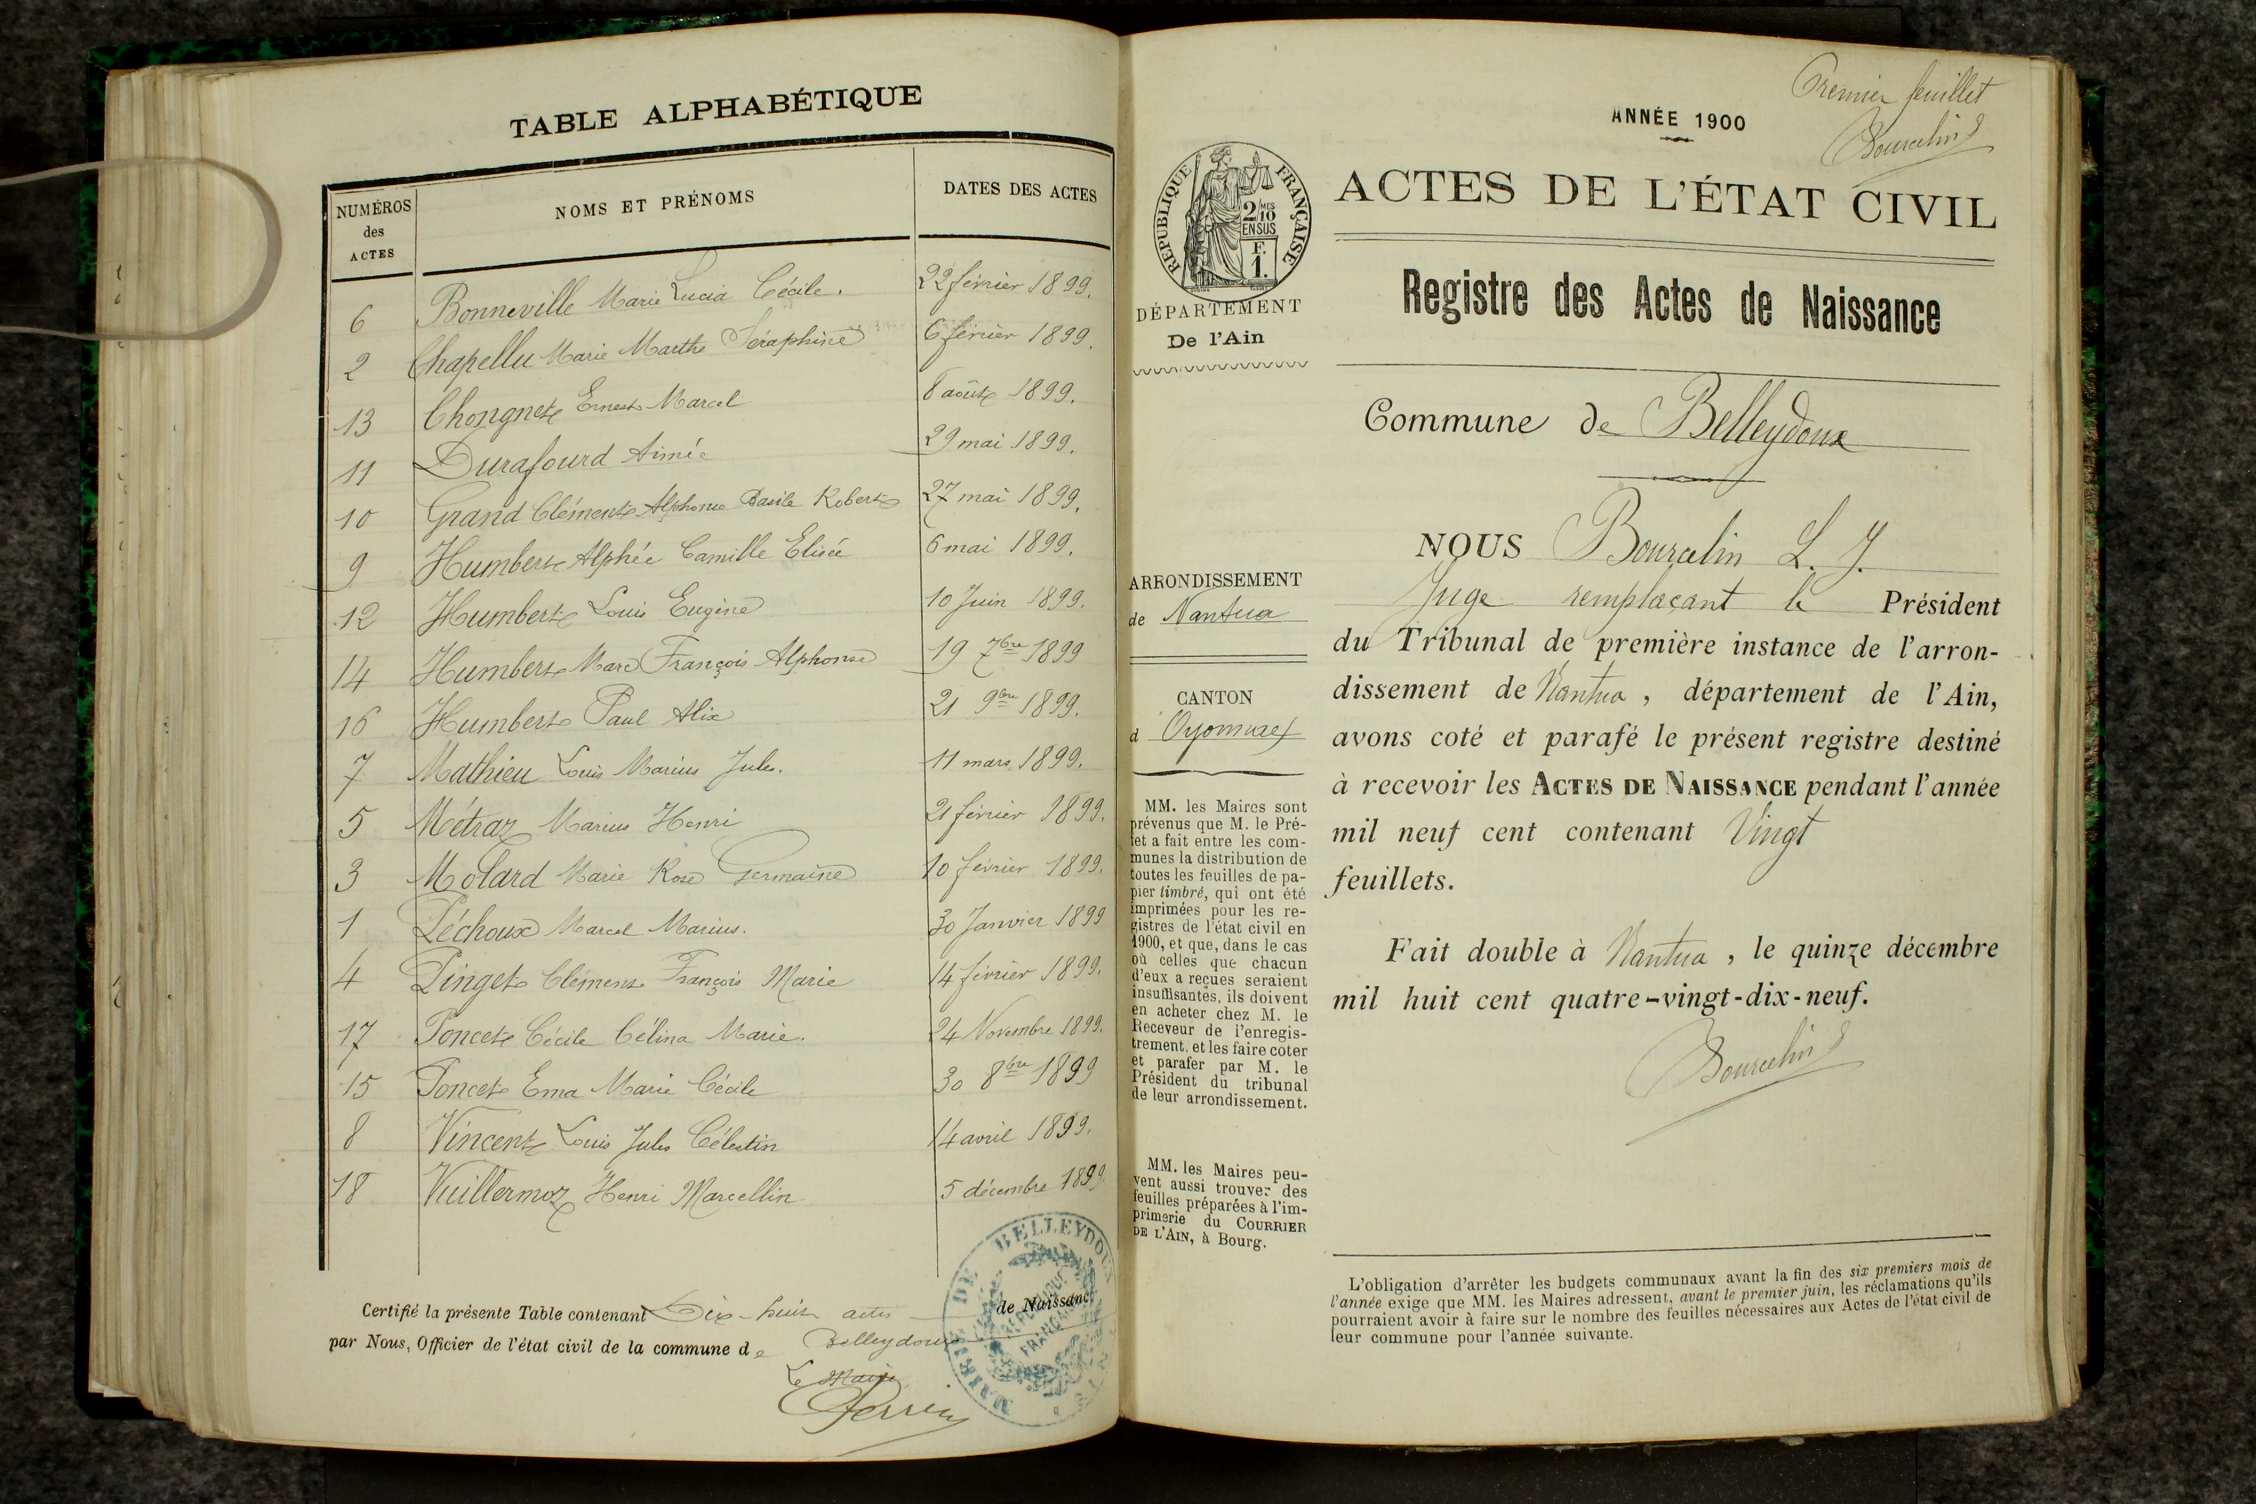 TABLE ALPHABÉTIQUE
NUMÉROS des ACTES
NOMS ET PRÉNOMS
DATES DES ACTES
6 Bonneville Marie Lucia Cécile. 22 février 1899.
2 Chapellu Marie Marthe Séraphine 6 février 1899.
13 Chongnet Ernest Marcel 8 août 1899.
11 Durafourd Aimée 29 mai 1899.
10 Grand Clément Alphonse Basile Robert 27 mai 1899.
9 Humbert Alphée Camille Elisée 6 mai 1899.
12 Humbert Louis Eugène 10 Juin 1899.
14 Humbert Marc François Alphonse 19 7bre 1899
16 Humbert Paul Alix 21 9bre 1899.
7 Mathieu Louis Marius Jules. 11 mars 1899.
5 Métraz Marius Henri 21 février 1899.
3 Molard Marie Rose Germaine 10 février 1899.
1 Péchoux Marcel Marius. 30 Janvier 1899
4 Pinget Clément François Marie 14 février 1899.
17 Poncet Cécile Célina Marie. 24 Novembre 1899.
15 Poncet Ema Marie Cécile 30 8bre 1899
8 Vincent Louis Jules Célestin 14 avril 1899.
18 Vuillermoz Henri Marcellin 5 décembre 1899
Certifié la présente Table contenant Dix-huit actes de Naissance
par Nous, Officier de l'état civil de la commune de Belleydoux
Le Maire
Perrin
MAIRIE DE BELLEYDOUX
RÉPUBLIQUE FRANÇAISE
Premier feuillet
Bourcelin
ANNÉE 1900
RÉPUBLIQUE FRANÇAISE
2/10 MES
EN SUS
F. 1.
DÉPARTEMENT
De l'Ain
ARRONDISSEMENT
de Nantua
CANTON
d Oyonnax
MM. les Maires sont
prévenus que M. le Pré-
fet a fait entre les com-
munes la distribution de
toutes les feuilles de pa-
pier timbré, qui ont été
imprimées pour les re-
gistres de l'état civil en
1900, et que, dans le cas
où celles que chacun
d'eux a reçues seraient
insuffisantes, ils doivent
en acheter chez M. le
Receveur de l'enregis-
trement, et les faire coter
et parafer par M. le
Président du tribunal
de leur arrondissement.
MM. les Maires peu-
vent aussi trouver des
feuilles préparées à l'im-
primerie du COURRIER
DE L'AIN, à Bourg.
ACTES DE L'ÉTAT CIVIL
Registre des Actes de Naissance
Commune de Belleydoux
NOUS Bourcelin L. J.
Juge remplaçant le Président
du Tribunal de première instance de l'arron-
dissement de Nantua, département de l'Ain,
avons coté et parafé le présent registre destiné
à recevoir les ACTES DE NAISSANCE pendant l'année
mil neuf cent contenant Vingt
feuillets.
Fait double à Nantua, le quinze décembre
mil huit cent quatre-vingt-dix-neuf.
Bourcelin
L'obligation d'arrêter les budgets communaux avant la fin des six premiers mois de
l'année exige que MM. les Maires adressent, avant le premier juin, les réclamations qu'ils
pourraient avoir à faire sur le nombre des feuilles nécessaires aux Actes de l'état civil de
leur commune pour l'année suivante.